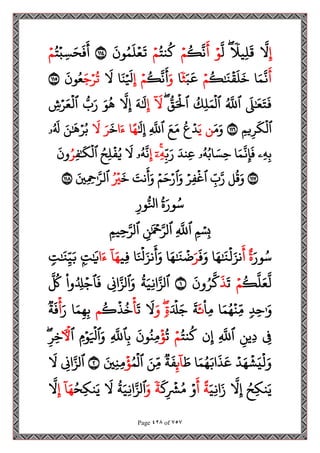 إِلَّا قَلِيلًا ۖ لَّوْ أَنَّكُمْ كُنتُمْ تَعْلَمُونَ ١١٤ أَفَحَسِبْتُمْ
أَنَّمَا خَلَقْنَـٰكُمْ عَبَثًا وَأَنَّكُمْ إِلَيْنَا لَا تُرْجَعُونَ ١١٥
فَتَعَـٰلَى ٱللَّهُ ٱلْمَلِكُ ٱلْحَقُّ ۖ لَآ إِلَـٰهَ إِلَّا هُوَ رَبُّ ٱلْعَرْشِ
ٱلْكَرِيمِ ١١٦ وَمَن يَدْعُ مَعَ ٱللَّهِ إِلَـٰهًا ءَاخَرَ لَا بُرْهَـٰنَ لَهُۥ
بِهِۦ فَإِنَّمَا حِسَابُهُۥ عِندَ رَبِّهِۦٓ ۚ إِنَّهُۥ لَا يُفْلِحُ ٱلْكَـٰفِرُونَ
١١٧ وَقُل رَّبِّ ٱغْفِرْ وَٱرْحَمْ وَأَنتَ خَيْرُ ٱلرَّٰحِمِينَ ١١٨
سُورَةُ النُّور
بِسْمِ ٱللَّهِ ٱلرَّحْمَـٰنِ ٱلرَّحِيمِ
سُورَةٌ أَنزَلْنَـٰهَا وَفَرَضْنَـٰهَا وَأَنزَلْنَا فِيهَآ ءَايَـٰتٍۭ بَيِّنَـٰتٍ
لَّعَلَّكُمْ تَذَكَّرُونَ ١ ٱلزَّانِيَةُ وَٱلزَّانِى فَٱجْلِدُوا۟ كُلَّ
وَٰحِدٍ مِّنْهُمَا مِا۟ئَةَ جَلْدَةٍ ۖ وَلَا تَأْخُذْكُم بِهِمَا رَأْفَةٌ
فِى دِينِ ٱللَّهِ إِن كُنتُمْ تُؤْمِنُونَ بِٱللَّهِ وَٱلْيَوْمِ ٱلْـَٔاخِرِ ۖ
وَلْيَشْهَدْ عَذَابَهُمَا طَآئِفَةٌ مِّنَ ٱلْمُؤْمِنِينَ ٢ ٱلزَّانِى لَا
يَنكِحُ إِلَّا زَانِيَةً أَوْ مُشْرِكَةً وَٱلزَّانِيَةُ لَا يَنكِحُهَآ إِلَّا
Page ٤٩٨ of ٧٥٧